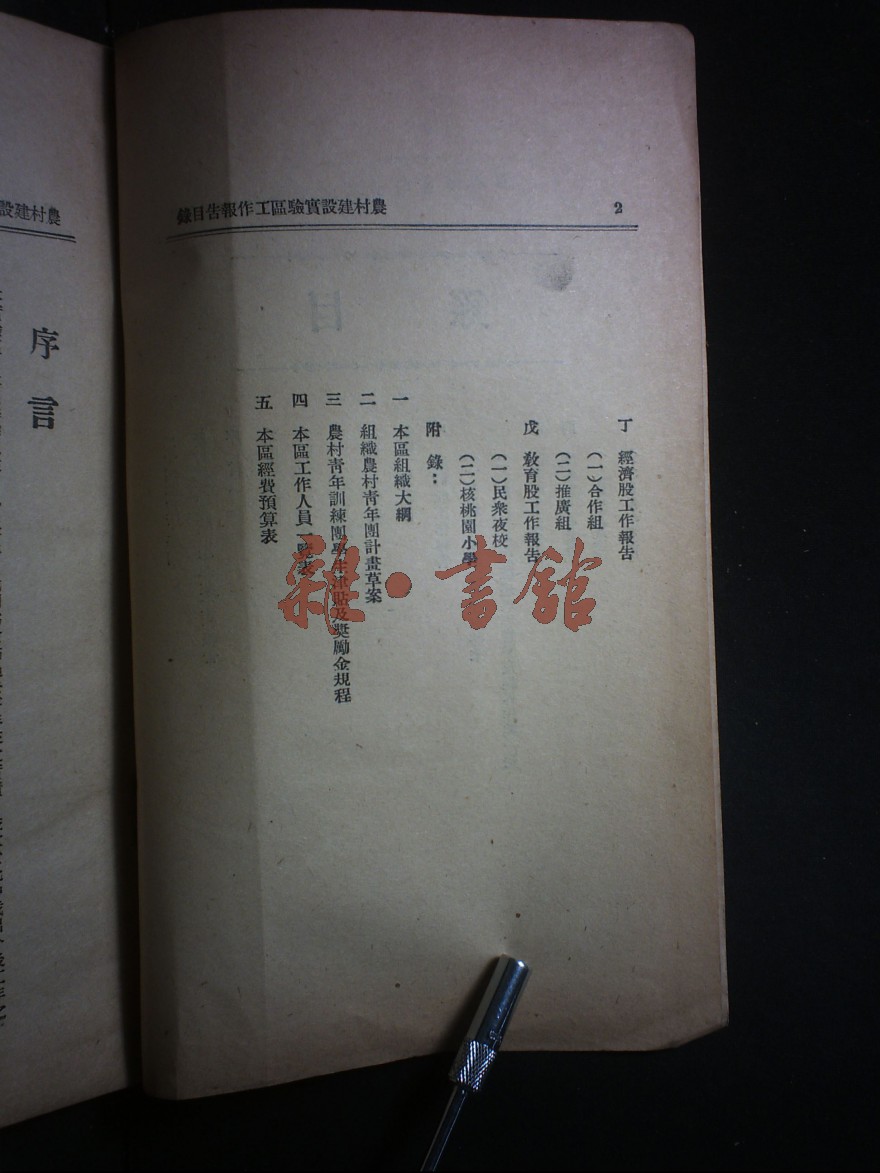 農村建設實驗區工作報告目錄
2
丁 經濟股工作報告
(一)合作組
(二)推廣組
戊 敎育股工作報告
(一)民衆夜校
(二)核桃園小學
附 錄：
一 本區組織大綱
二 組織農村靑年團計畫草案
三 農村靑年訓練團學生津貼及獎勵金規程
四 本區工作人員一覽表
五 本區經費預算表
雜·書館
農村建設
序言